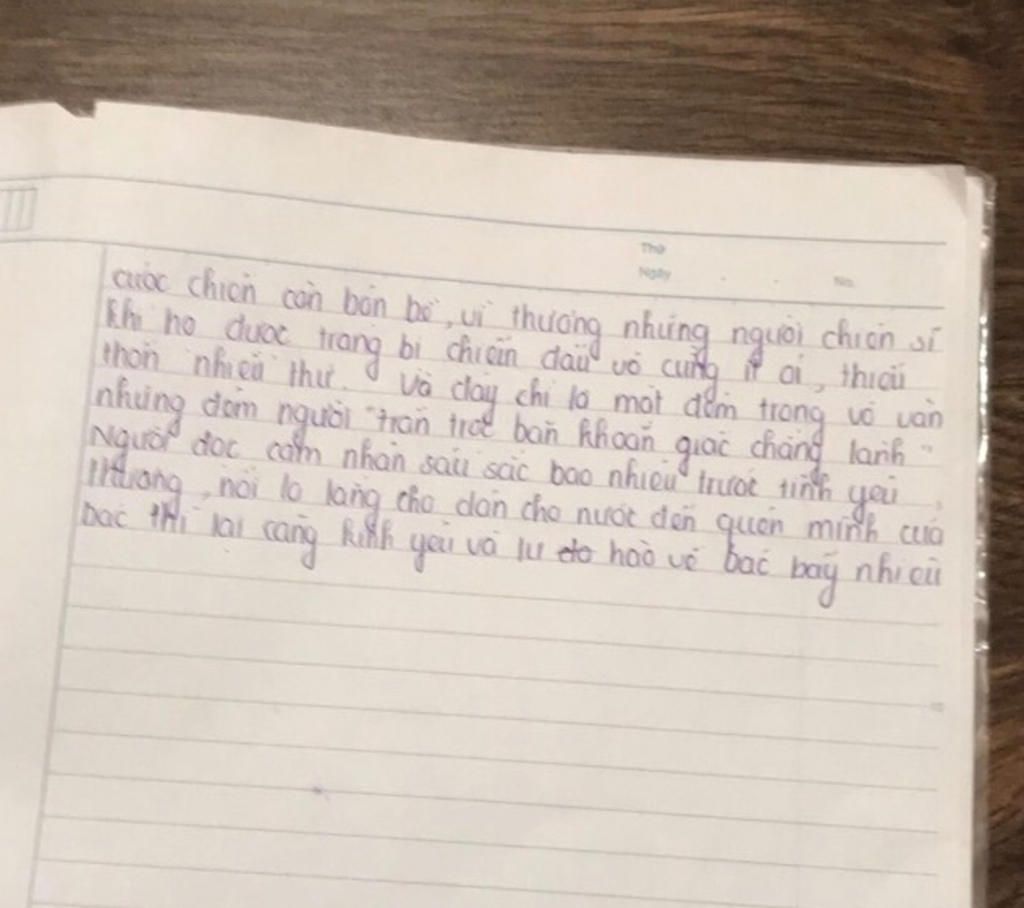 Thứ
Ngày
No.
cuộc chiến còn bộn bề, vì thương những người chiến sĩ
khi họ được trang bị chiến đấu vô cùng ít ỏi, thiếu
thốn nhiều thứ. Và đây chỉ là một đêm trong vô vàn
những đêm người "trằn trọc băn khoăn giấc chẳng lành"
Người đọc cảm nhận sâu sắc bao nhiêu trước tình yêu
thương, nỗi lo lắng cho dân cho nước đến quên mình của
bác thì lại càng kính yêu và tự hào về bác bấy nhiêu